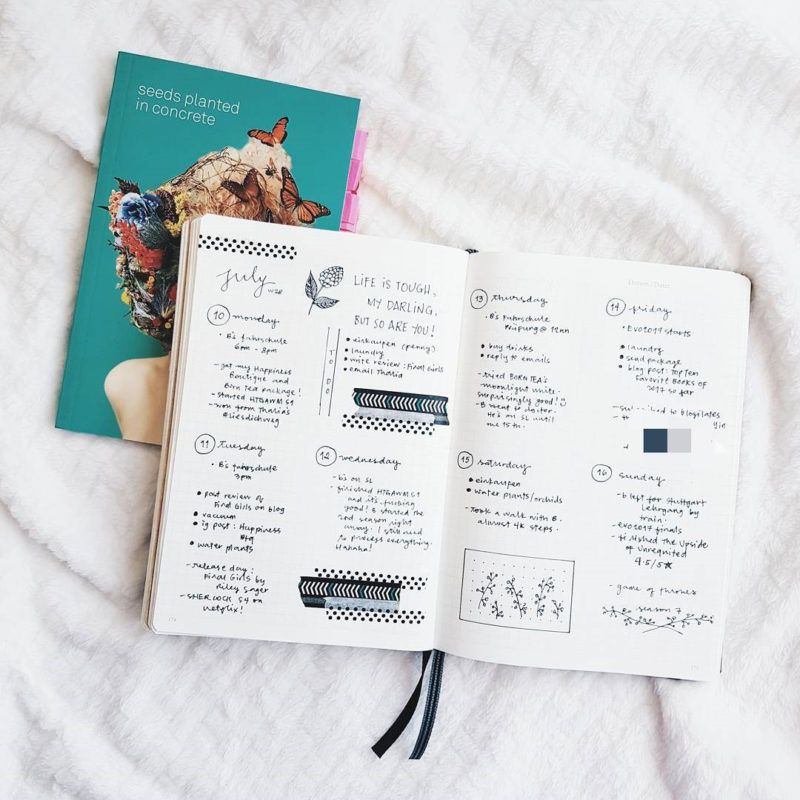 seeds planted
in concrete
July
W28
LIFE IS TOUGH,
MY DARLING,
BUT SO ARE YOU!
10 monday
• B's Fahrschule
6pm - 8pm
- got my Happiness
Boutique and
Born Tea package!
- started HTGAWM S1
- won from Thalia's
#liesdichweg
TO DO
• einkaufen (penny)
• laundry
• write review: Final Girls
• email Thalia
11 tuesday
• B's Fahrschule
7pm
• post review of
Final Girls on blog
• vacuum
• ig post: Happiness
• water plants
- release day:
Final Girls by
Riley Sager
- SHERLOCK S4 on
netflix!
12 wednesday
- b's on SL
- finished HTGAWM S1
and it's fucking
good! B started the
2nd season right
away. I still need
to process everything.
Hahaha!
174
13 thursday
• B's Fahrschule
Prüfung @ 12nn
• buy drinks
• reply to emails
- tried BORN TEA's
moonlight unite -
surprisingly good!
- B went to doctor.
He's on SL until
the 15th.
Datum/Date:
14 friday
• EVO2017 starts
• laundry
• send package
• blog post: Top Ten
Favorite Books of
2017 so far
to blogilates
15 saturday
• einkaufen
• water plants/orchids
- Took a walk with B.
almost 4k steps.
16 sunday
- b left for stuttgart
Lehrgang by
train.
- EVO2017 finals
- finished The Upside
of Unrequited
4.5/5 ★
- game of thrones
season 7